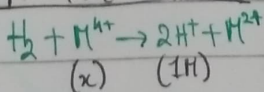 H₂ + M⁴⁺ → 2H⁺ + M²⁺
(x) (1M)